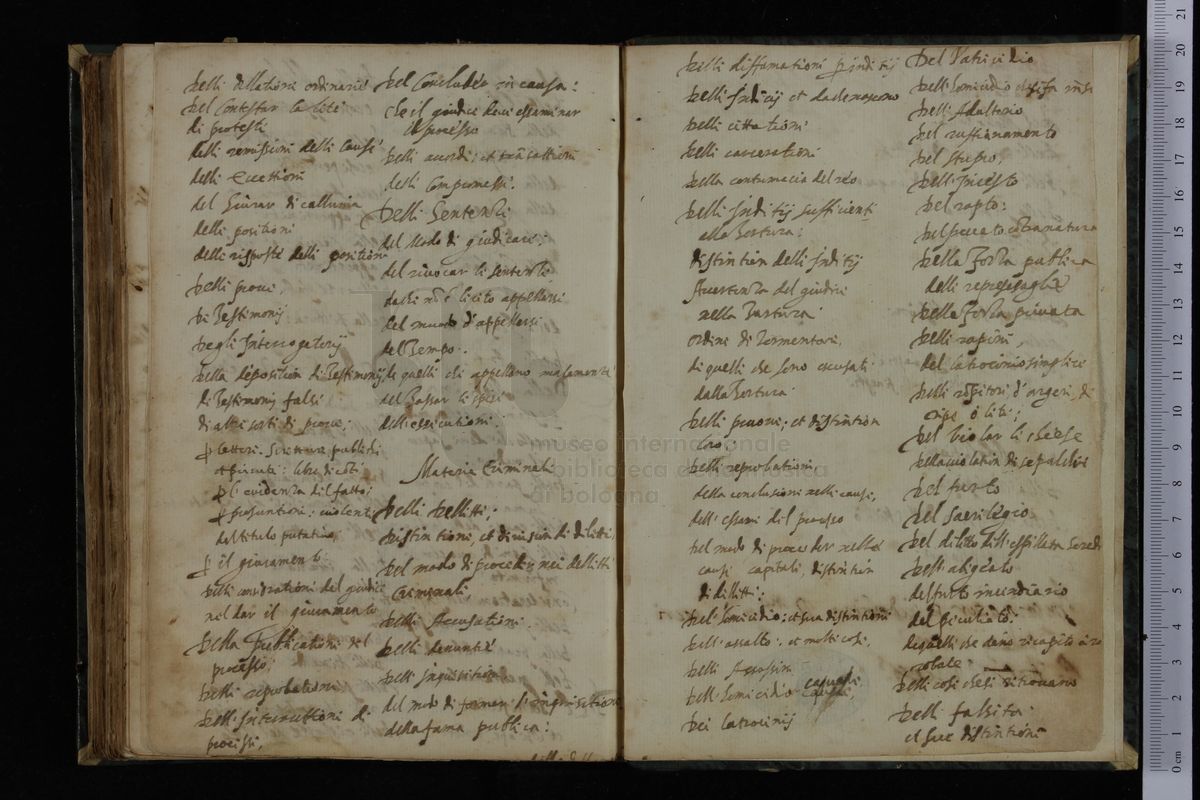 Delli dillationi ordinarie
Del Contestar la lite
di protesti
delli remissioni delli Cause
delli Eccettioni
del Giurar di callunia
delli positioni
delli risposte delli position
Delli prove
Di Testimonij
Degli Interrogatorij
Della deposition di Testimonij
di Testimonij falsi
di altre sorti di prove;
p lettere. Scritture publich.
et private: libri di coti
p l'evidenza dil fatto;
p presuntioni; violenti
del titulo putativo
p il giuramento
Delli considerationi del giudice
nel dar il giuramento
Della Publicationi del
processo;
Delli reprobationi
Dell'Instruttioni di
processi,
Del Concluder in causa:
che il giudice deve essaminar
il processo
Delli accordi; et transattioni
delli Compromessi.
Delli Sententie
del Modo di giudicare;
del rivocar li sententie
da chi non è licito appellarsi
del modo d'appellarsi
del Tempo.
de quelli chi appellano malamente
del Tassar le spese
dell'essecutioni.
Materia Criminale
Delli Dellitti;
Distintioni, et division di dilitti,
Del modo di proceder nei dellitti
Criminali,
Delli Accusationi
Delli denuntie
Dell'Inquisitioni
del modo di formar l'inquisitioni
della fama publica:
Delli diffamationi p inditij
Delli Inditij et da che nascono
Delli cittationi
Delli carcerationi
Della contumacia del reo
Delli Inditij sufficienti
alla Tortura:
distintion delli Inditij
Avertenza del giudice
nella Tortura
ordine di Tormentare,
di quelli che sono escusati
dalla Tortura
Delli penone; et distintion
loro
Delli reprobationi
della conclusioni nelli cause,
dell'essame dil processo
Del modo di proceder nelle
cause capitali, distintion
di dilitti;
Dell'homicidio; et sua distintioni
Dell'assalto; et molte cose.
Delli Assassini
Dell'homicidio casuale
Dei Latrocinij
Del Patricidio
Dell'homicidio
Dell'Adulterio
Del ruffianamento
Del stupro,
Dell'Incesto
Del rapto:
Del peccato contra natura
Della forza publica
delli represaglie
Della forza privata
Delli rapine,
Del latrocinio simplice
Delli
Del violar li chiese
Della violation di sepulchri
Del furto
Del sacrilegio
Del dilitto dell'espillata heredi
Dell'abigeato
dell'furto incendiario
del peculiato.
de quelli che dano ricapito a
robale
Delli cose che si ritrovano
Dell falsità
et sue distintioni
museo internazionale
e biblioteca della musica
di bologna